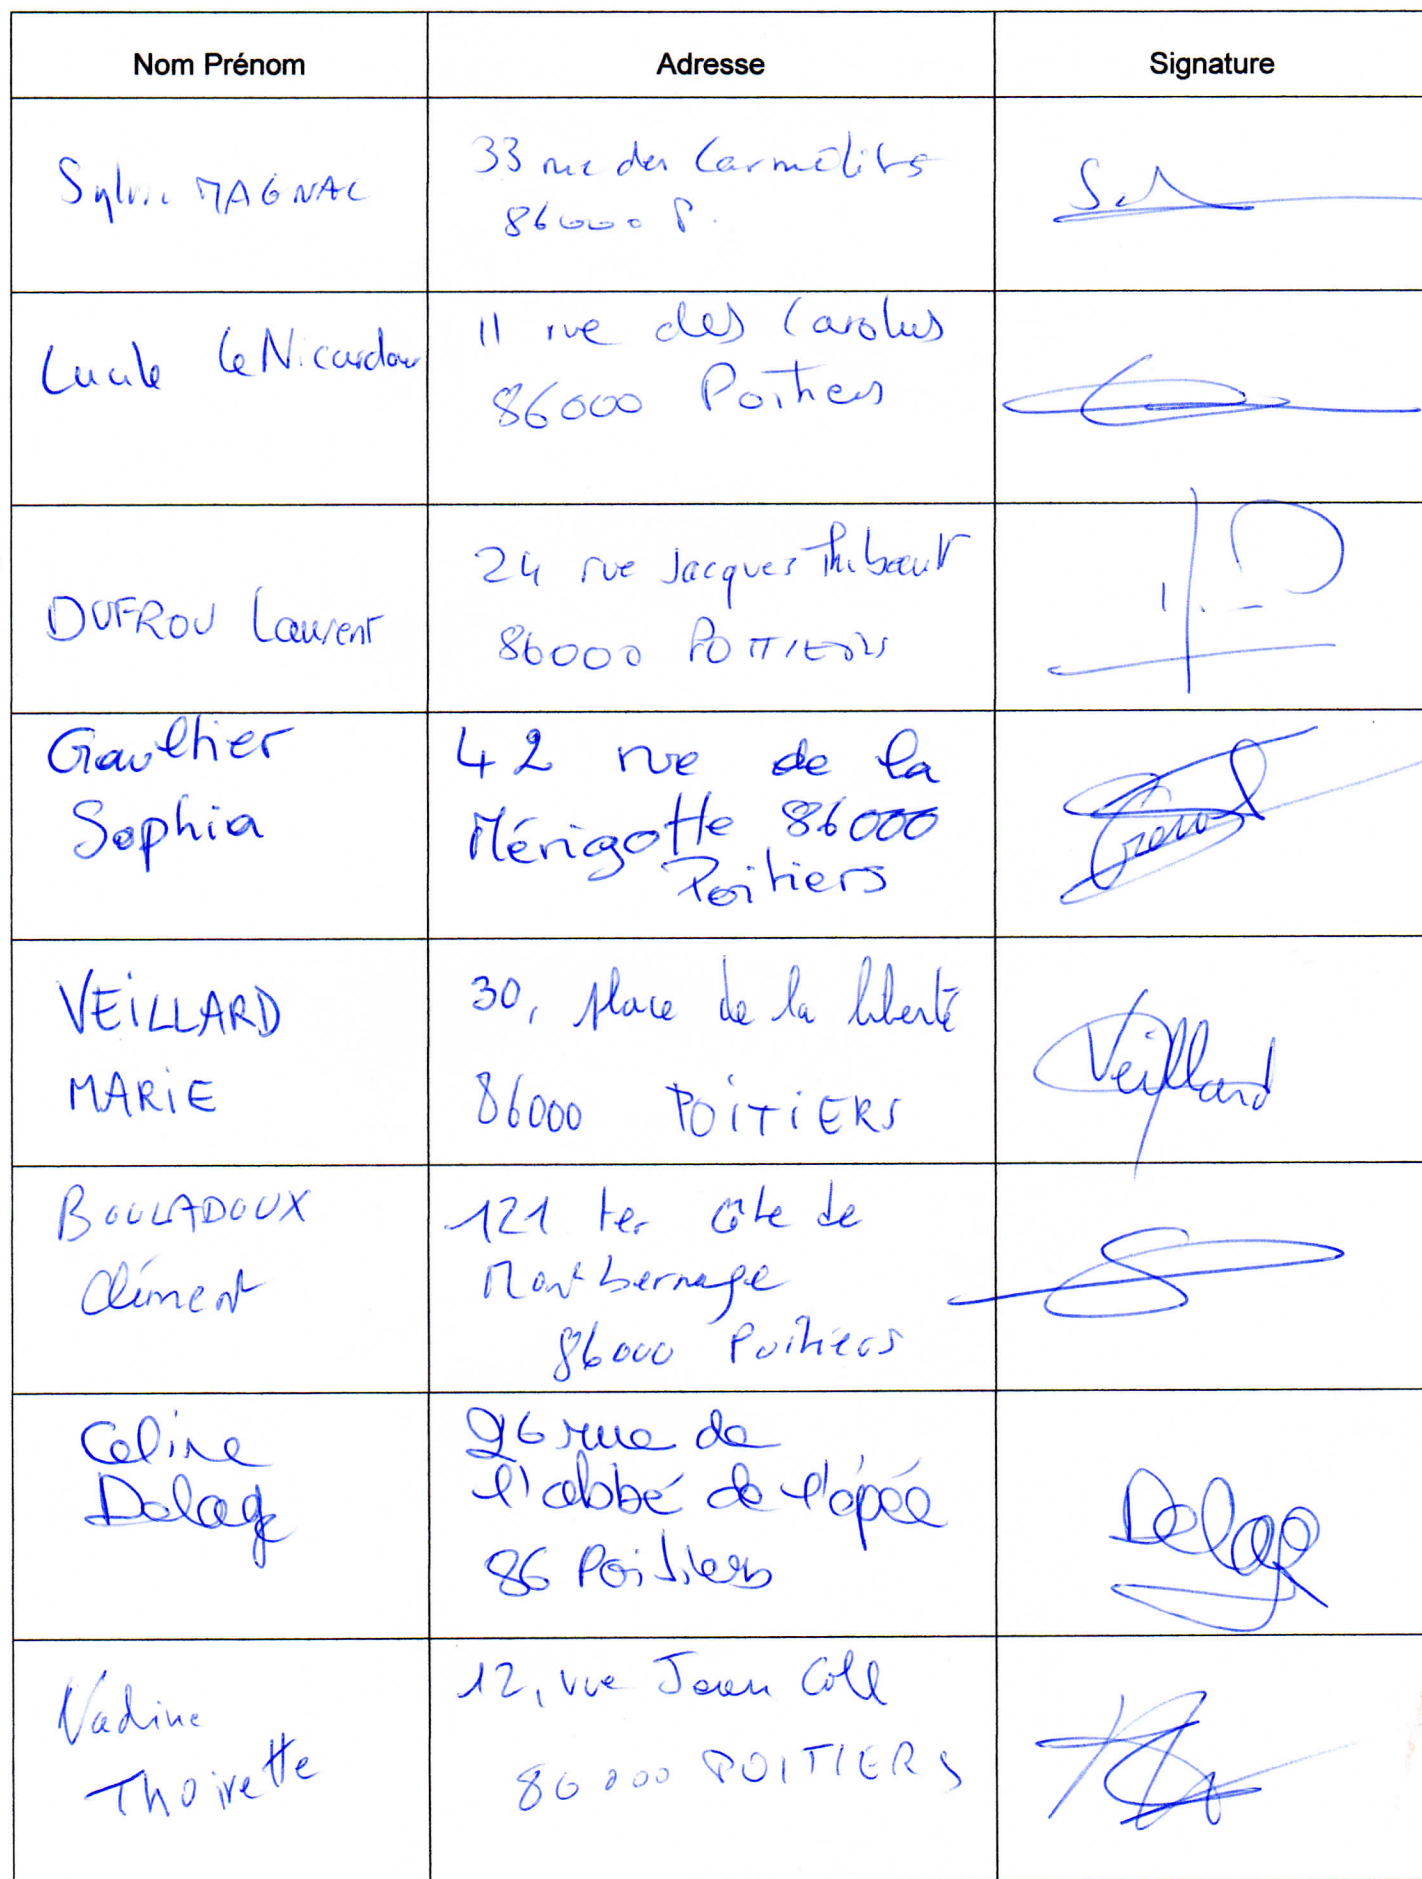 Nom Prénom
Adresse
Signature
Sylvie MAGNAC
33 rue des Carmélites
86000 P.
Lucile Le Nicardour
11 rue des Carolus
86000 Poitiers
DUFROU Laurent
24 rue Jacques Thibault
86000 POITIERS
Gaulthier
Sophia
42 rue de la
Mérigotte 86000
Poitiers
VEILLARD
MARIE
30, place de la liberté
86000 POITIERS
Veillard
BOULADOUX
Clément
121 ter côte de
Montbernage
86000 Poitiers
Celine
Delage
26 rue de
l'abbé de l'épée
86 Poitiers
Delage
Nadine
Thoirette
12, rue Jean Coll
86000 POITIERS